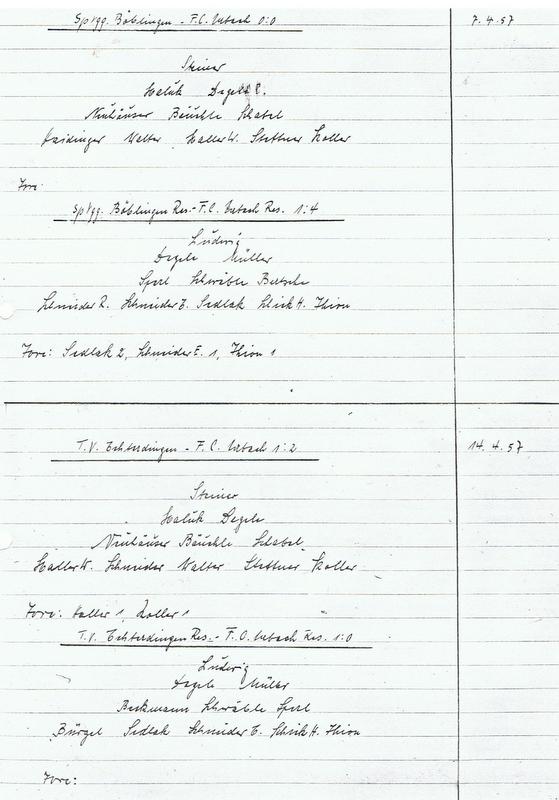 Spvgg. Böblingen - F.C. Urbach 0:0 7.4.57
Steiner
Haluk Degele E.
Neuhäuser Bäuchle Schabel
Haidinger Walter Haller W. Stettner Koller
Tore:
Spvgg. Böblingen Res. - F.C. Urbach Res. 1:4
Ludwig
Degele Müller
Sperl Schwäble Beutsche
Schneider R. Schneider E. Sedlak Schick H. Thion
Tore: Sedlak 2, Schneider E. 1, Thion 1
T.V. Echterdingen - F.C. Urbach 1:2 14.4.57
Steiner
Haluk Degele
Neuhäuser Bäuchle Schabel
Haller W. Schneider Walter Stettner Koller
Tore: Haller 1, Koller 1
T.V. Echterdingen Res. - F.C. Urbach Res. 1:0
Ludwig
Degele Müller
Beckmann Schwäble Sperl
Bürgel Sedlak Schneider E. Schick H. Thion
Tore: